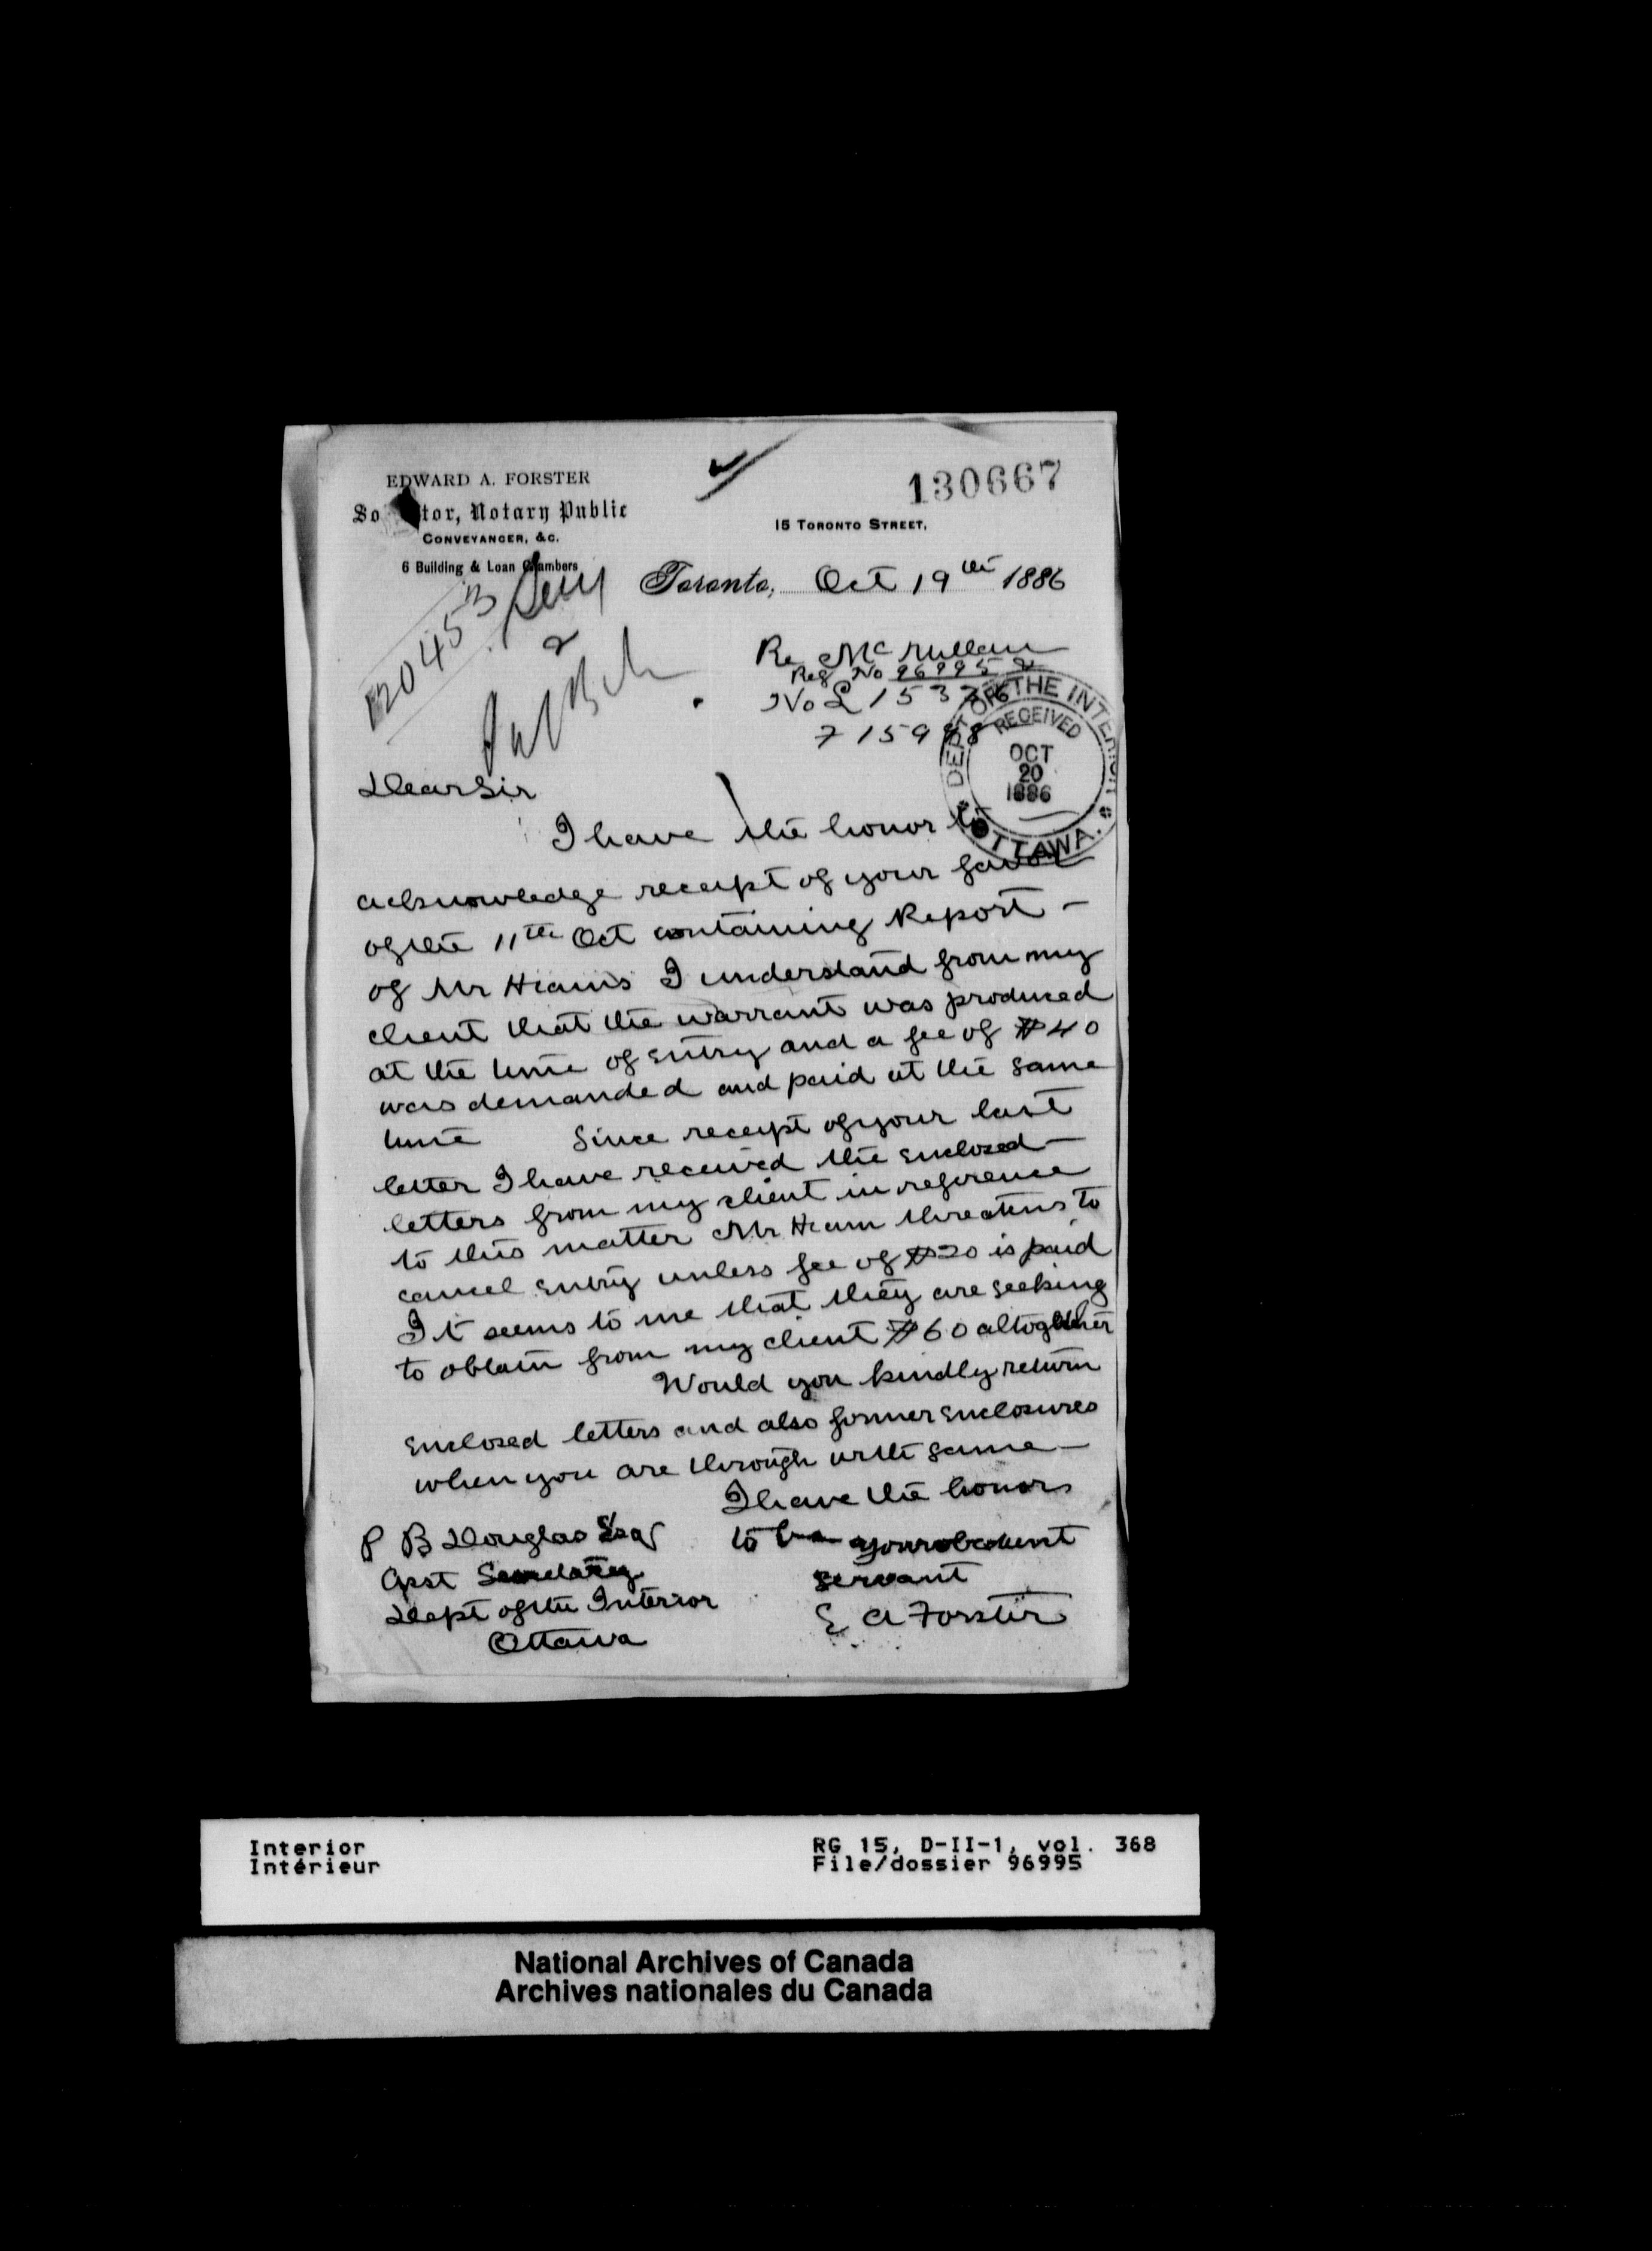 EDWARD A. FORSTER
So tor, Notary Public
CONVEYANCER, &C.
6 Building & Loan Chambers
130667
15 TORONTO STREET,
Toronto, Oct 19th 1886
12045 B
Re McMullan
Reg No 96995
No L 15336
715998
DEPT OF THE INTERIOR
RECEIVED
OCT
20
1886
OTTAWA.
Dear Sir
I have the honor to
acknowledge receipt of your favor
of the 11th Oct containing Report -
of Mr Hiams I understand from my
client that the warrant was produced
at the time of entry and a fee of $40
was demanded and paid at the same
time Since receipt of your last
letter I have received the enclosed -
letters from my client in reference
to this matter Mr Hiam threatens to
cancel entry unless fee of $20 is paid
It seems to me that they are seeking
to obtain from my client $60 altogether
Would you kindly return
enclosed letters and also former enclosures
when you are through with same -
I have the honor
to be your obedient
servant
E A Forster
P B Douglas Esq
Asst Secretary
Dept of the Interior
Ottawa
Interior
Intérieur
RG 15, D-II-1, vol. 368
File/dossier 96995
National Archives of Canada
Archives nationales du Canada